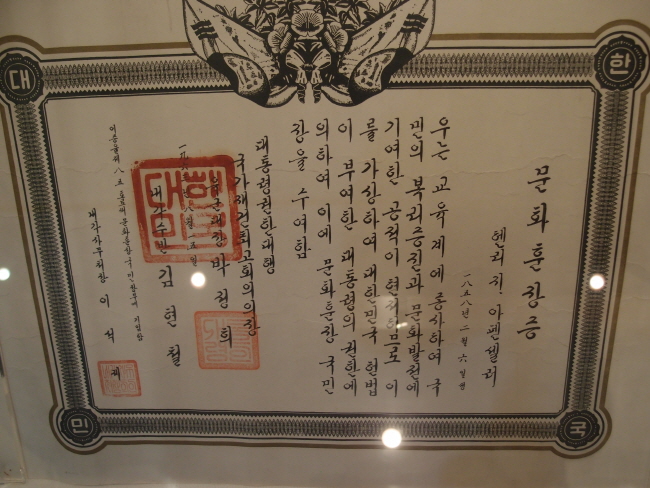 대 한
민 국
문화훈장증
헨리 지. 아펜셀러
一八五八년 二월 六일생
우는 교육계에 종사하여 국
민의 복리증진과 문화발전에
기여한 공적이 현저함으로 이
를 가상하여 대한민국 헌법
이 부여한 대통령의 권한에
의하여 이에 문화훈장 국민
장을 수여함
대통령권한대행
국가재건최고회의의장
육군대장 박정희
八월 一五일
내각수반 김현철
내각사무처장 이석제